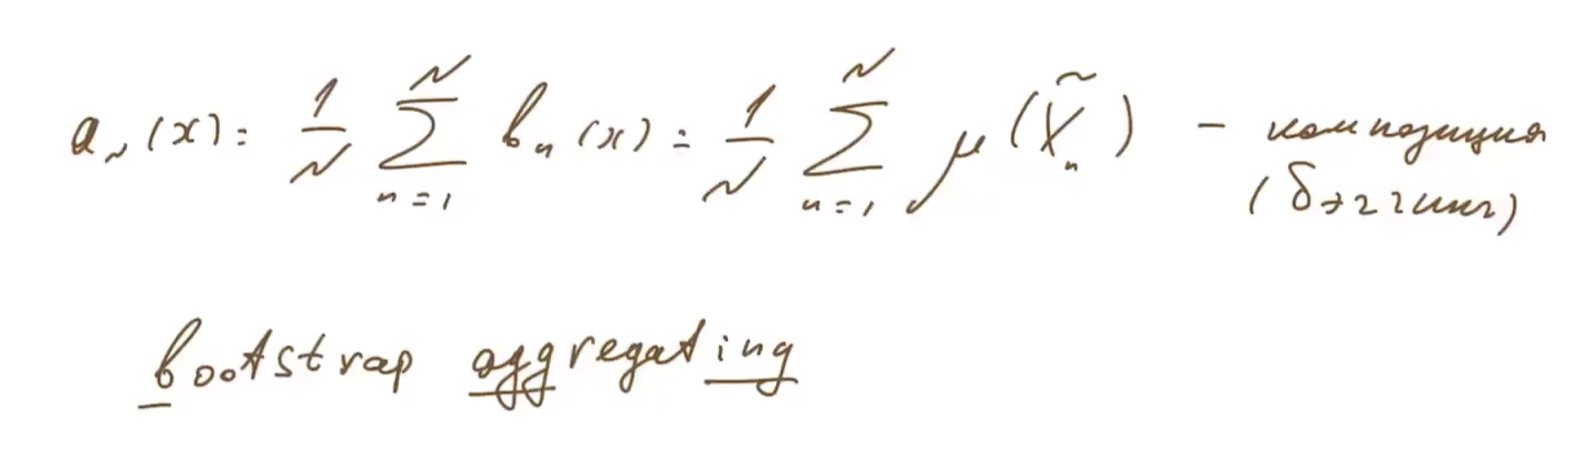 a_N(x) = 1/N ∑_{n=1}^{N} b_n(x) = 1/N ∑_{n=1}^{N} μ(X̃_n) - композиция
(бэггинг)
bootstrap aggregating